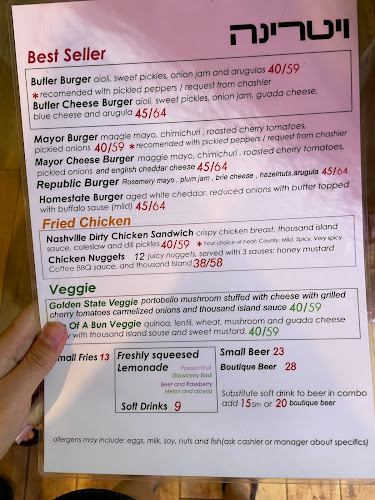 ויטרינה
Best Seller
Butler Burger aioli, sweet pickles, onion jam and arugulas 40/59
* recomended with pickled peppers / request from chashier
Butler Cheese Burger aioli, sweet pickles, onion jam, guada cheese,
blue cheese and arugula 45/64
Mayor Burger maggie mayo, chimichuri , roasted cherry tomatoes,
pickled onions 40/59 * recomented with pickled peppers / request from chashier
Mayor Cheese Burger maggie mayo, chimichuri , roasted cherry tomatoes,
pickled onions and english cheddar cheese 45/64
Republic Burger Rosemary mayo , plum jam , brie cheese , hazelnuts,arugula 45/64
Homestate Burger aged white cheddar. reduced onions with butter topped
with buffalo sauce (mild) 45/64
Fried Chicken
Nashville Dirty Chicken Sandwich crispy chicken breast, thousand island
sauce, coleslaw and dill pickles 40/59 * Your choice of heat: County, Mild, Spicy, Very spicy
Chicken Nuggets 12 juicy nuggets, served with 3 sauces: honey mustard
Coffee BBQ sauce, and thousand island 38/58
Veggie
Golden State Veggie portobello mushroom stuffed with cheese with grilled
cherry tomatoes carmelized onions and thousand island sauce 40/59
Of A Bun Veggie quinoa, lentil, wheat, mushroom and guada cheese
with thousand island sauce and sweet mustard. 40/59
Small Fries 13
Freshly squeesed
Lemonade
Passion Fruit
Strawberry Basil
Beet and Raseberry
Melon and aloysia
Soft Drinks 9
Small Beer 23
Boutique Beer 28
Substitute soft drink to beer in combo
add 15 sm or 20 boutique beer
allergens may include: eggs, milk, soy, nuts and fish(ask cashier or manager about specifics)